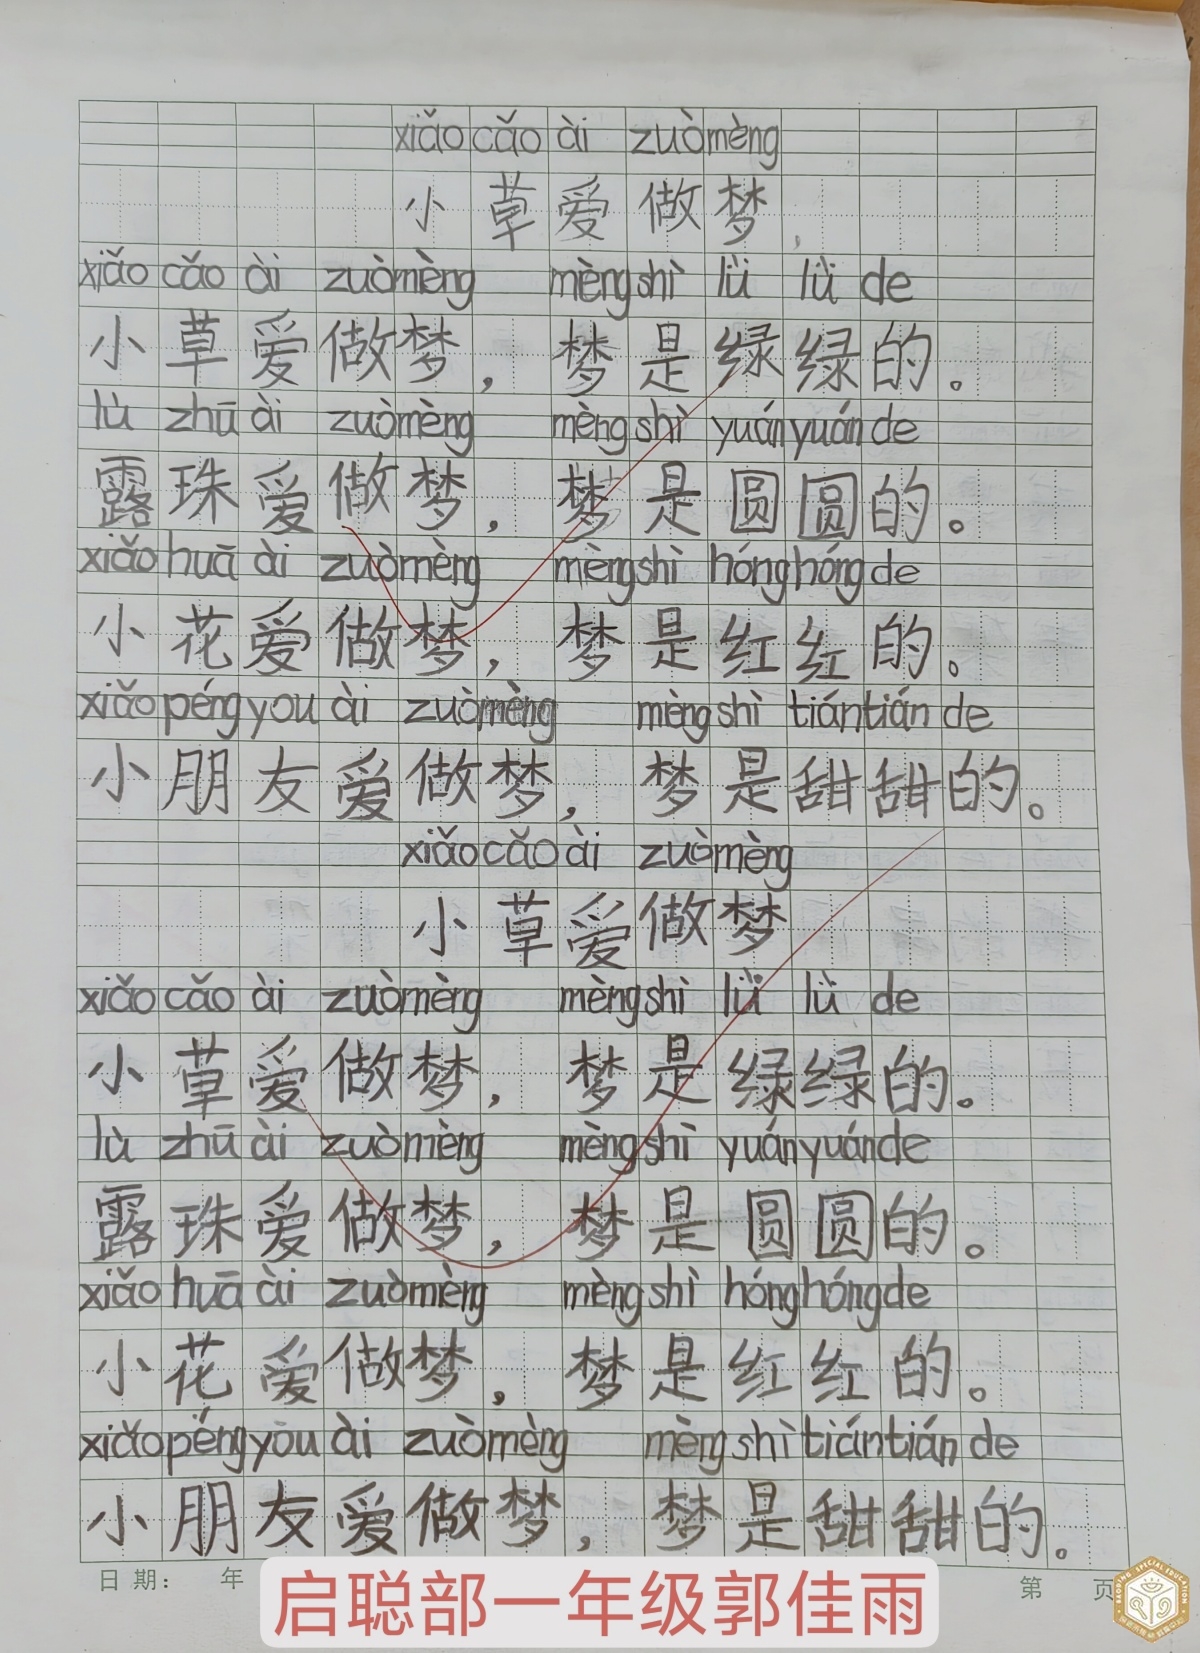 xiǎo cǎo ài zuò mèng
小草爱做梦
xiǎo cǎo ài zuò mèng mèng shì lǜ lǜ de
小草爱做梦，梦是绿绿的。
lù zhū ài zuò mèng mèng shì yuán yuán de
露珠爱做梦，梦是圆圆的。
xiǎo huā ài zuò mèng mèng shì hóng hóng de
小花爱做梦，梦是红红的。
xiǎo péng you ài zuò mèng mèng shì tián tián de
小朋友爱做梦，梦是甜甜的。
xiǎo cǎo ài zuò mèng
小草爱做梦
xiǎo cǎo ài zuò mèng mèng shì lǜ lǜ de
小草爱做梦，梦是绿绿的。
lù zhū ài zuò mèng mèng shì yuán yuán de
露珠爱做梦，梦是圆圆的。
xiǎo huā ài zuò mèng mèng shì hóng hóng de
小花爱做梦，梦是红红的。
xiǎo péng you ài zuò mèng mèng shì tián tián de
小朋友爱做梦，梦是甜甜的。
日期： 年 第 页
启聪部一年级郭佳雨